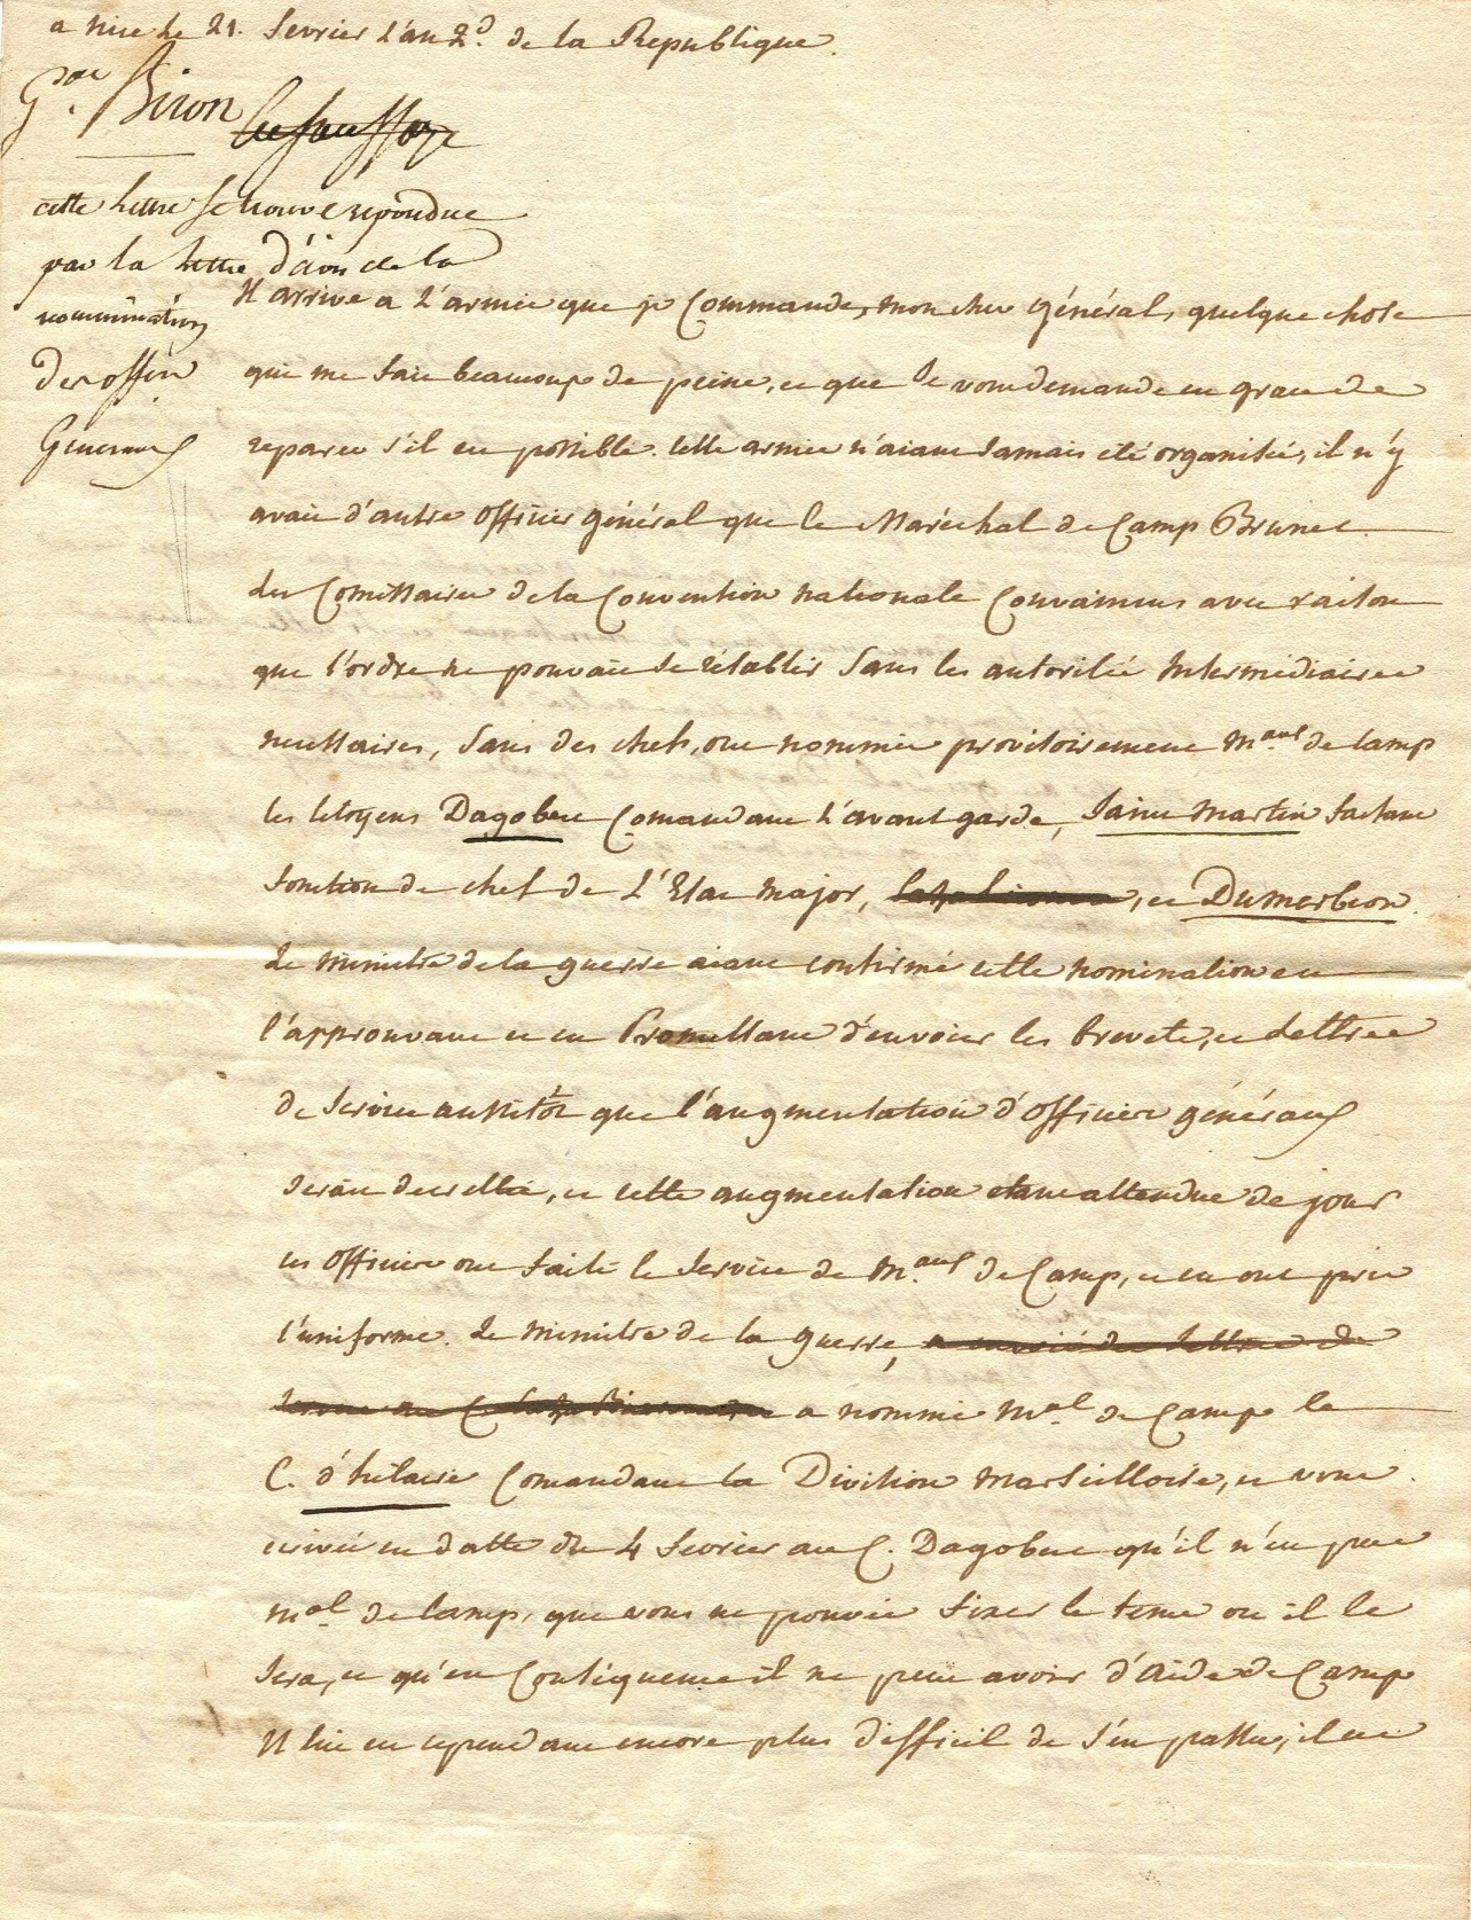 a nice le 21. fevrier l'an 2d. de la Republique.
Gal. Biron
cette lettre se trouve repondue
par la lettre d'avis de la
nomination
des offers
Generaux
Il arrive a l'armée que je Commande, mon cher général, quelque chose
qui me fait beaucoup de peine, et que je vous demande en grace de
reparer s'il est possible. cette armée n'aiant jamais été organisée, il n'y
avait d'autre officier général que le Maréchal de Camp Brunet.
les Comissaires de la Convention nationale Convaincus avec raison
que l'ordre ne pouvait se rétablir sans les autorités Intermédiaires
necessaires, sans des chefs, ont nommés provisoirement maux. de camp
les Citoyens Dagobert Comandant l'avant garde, Saint Martin faisant
fonction de chef de l'Etat major, et Dumerbion.
Le ministre de la guerre aiant confirmé cette nomination en
l'approuvant et en Promettant d'envoier les brevets, et lettres
de service aussitôt que l'augmentation d'officiers généraux
serait decrettée, et cette augmentation etant attendue de jour
ces officiers ont fait le service de maux. de Camp, et en ont pris
l'uniforme. Le ministre de la guerre, a envoié des lettres de
service au C. a nommé mal. de Camp le
C. d'hilaire Comandant la Division Marseilloise, et vous
ecrivés en datte du 4 fevrier au C. Dagobert qu'il n'est pas
mal. de camp, que vous ne pouvés fixer le tems ou il le
sera, et qu'en Conséquence il ne peut avoir d'Aide de Camp
Il lui est cependant encore plus difficil de s'en passer, il est